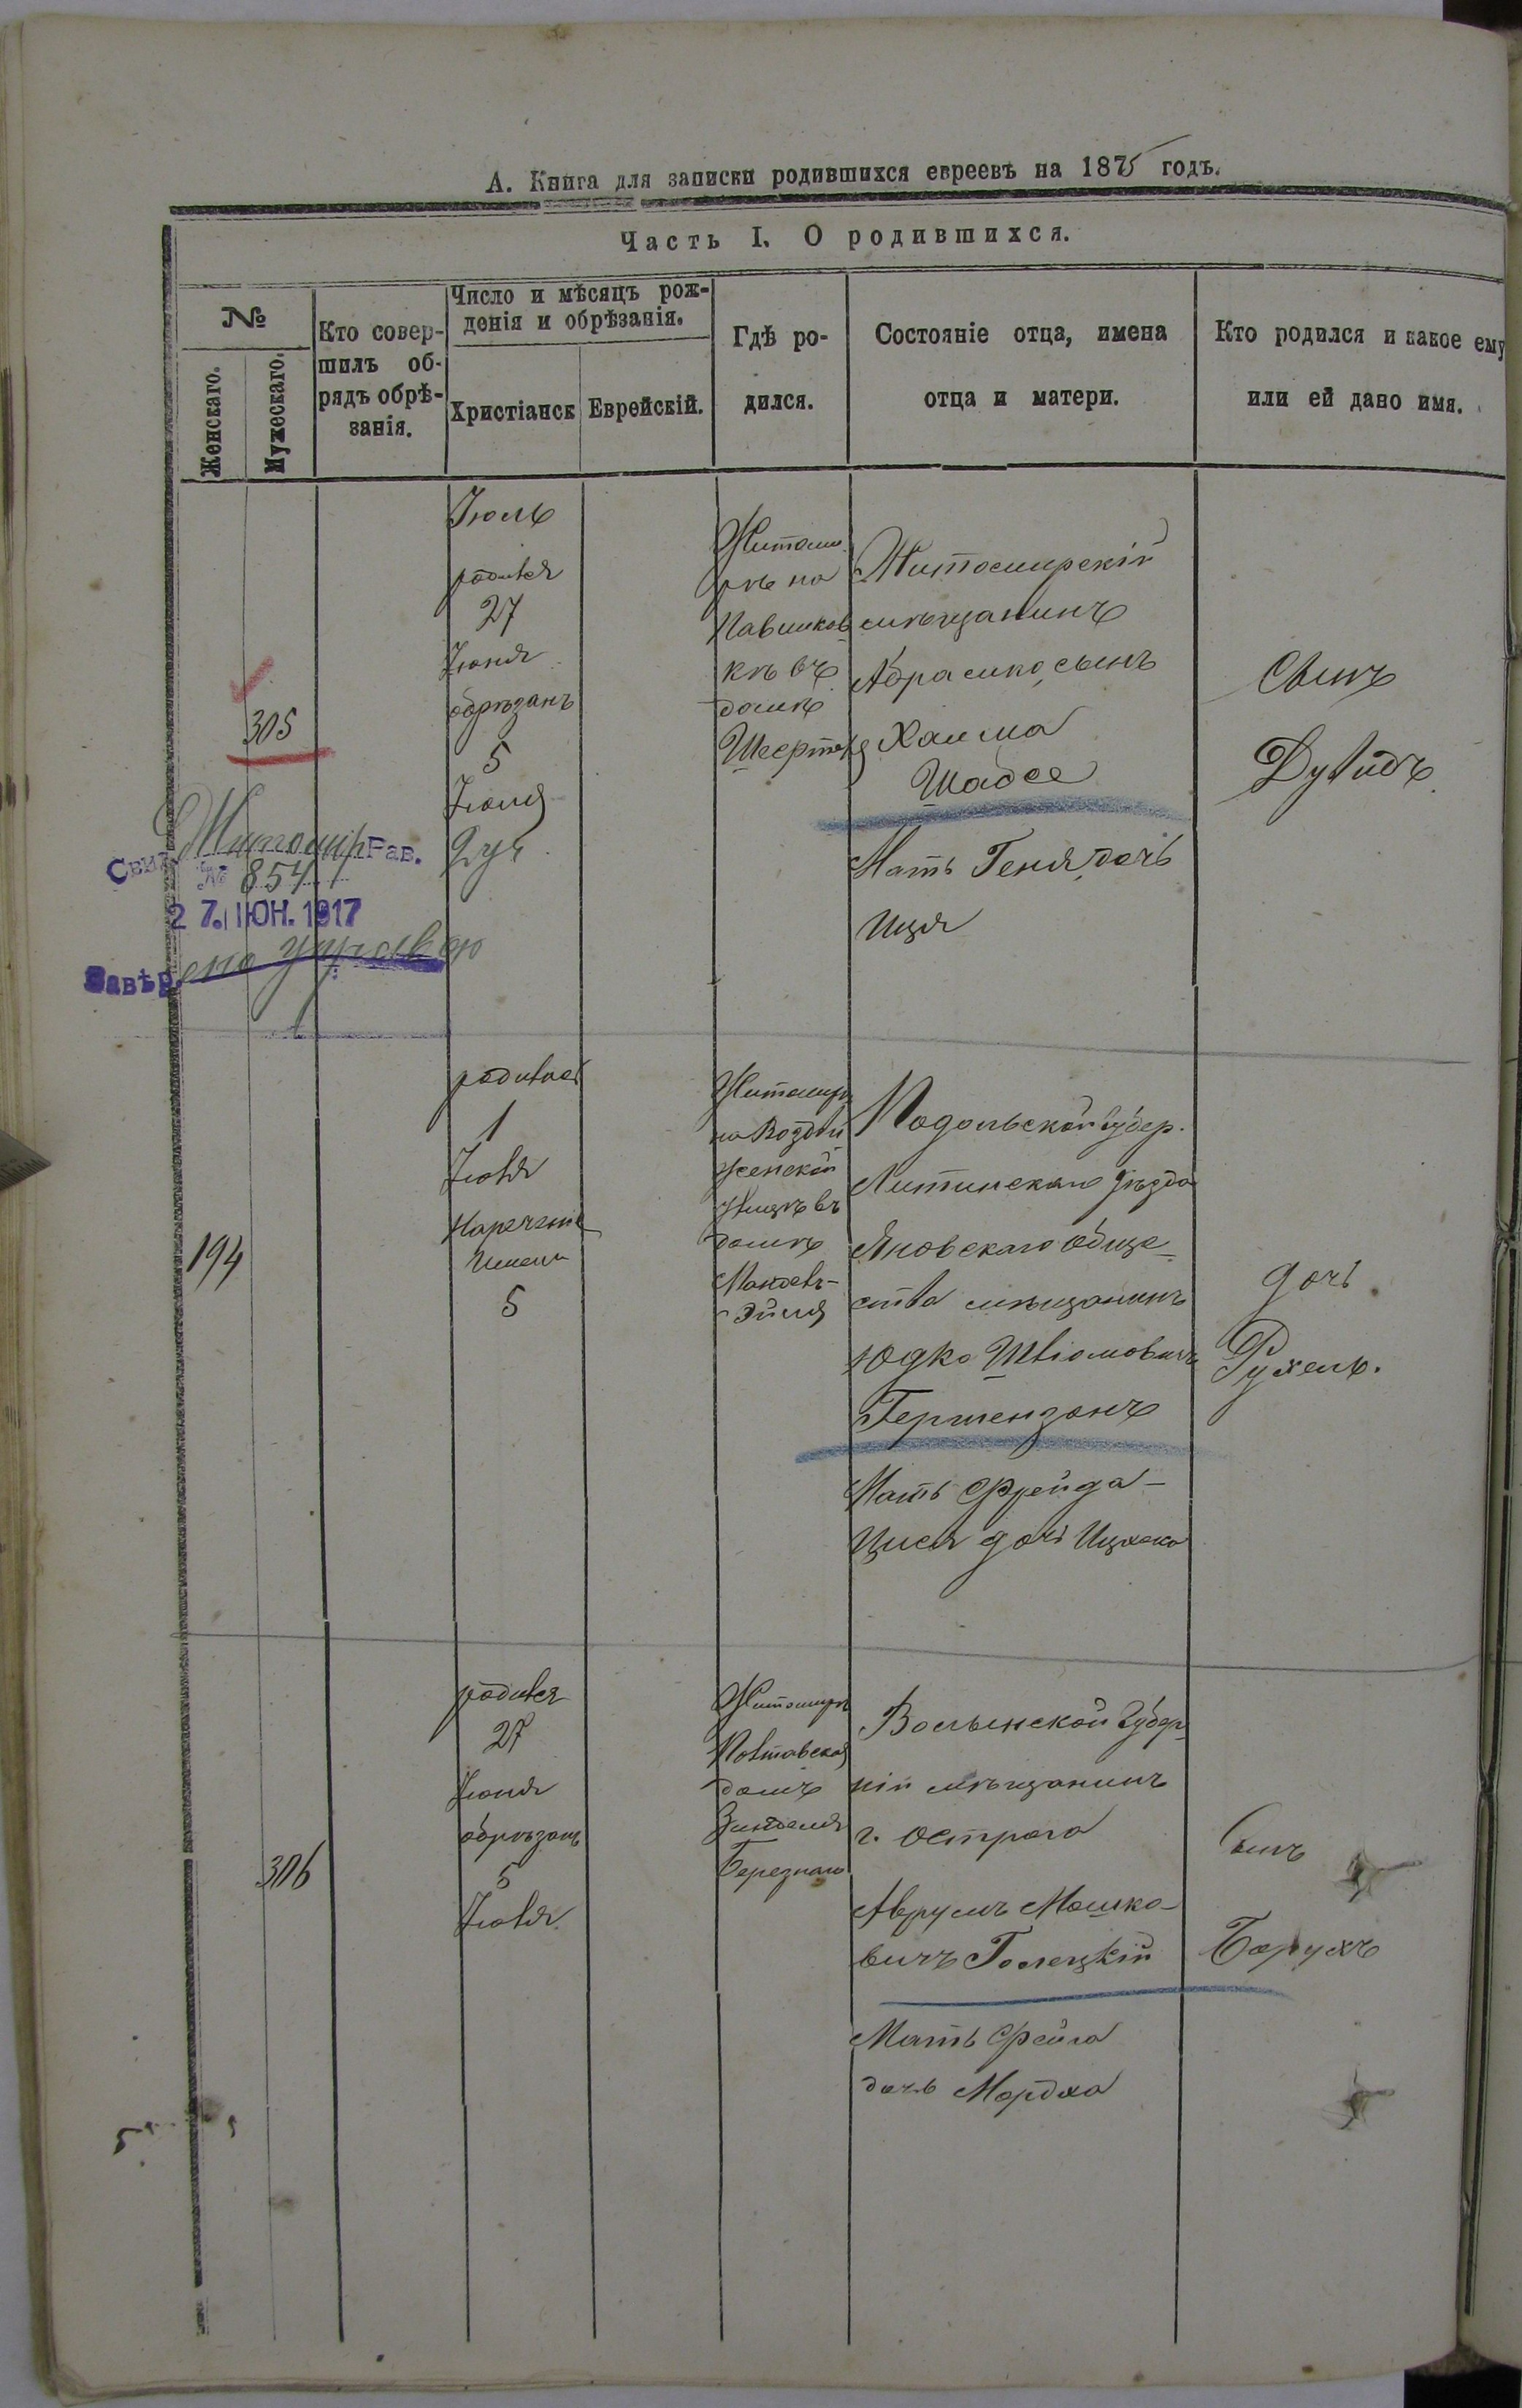 А. Книга для записки родившихся евреевъ на 1875 годъ.
Часть I. О родившихся.
№
Женскаго.
Мужескаго.
Кто совер-
шилъ об-
рядъ обрѣ-
занія.
Число и мѣсяцъ рож-
денія и обрѣзанія.
Христіанск
Еврейскій.
Гдѣ ро-
дился.
Состояніе отца, имена
отца и матери.
Кто родился и какое ему
или ей дано имя.
305
Іюль
родился
27
Іюня
обрѣзанъ
5
Іюля
Житоми
рѣ на
Павликов
кѣ въ
домѣ
Житомирскій
мѣщанинъ
Абрамко, сынъ
Хаима
Шадсе
Мать Геня, дочь
Иця
Сынъ
Дувидъ
Свид. Житомир Рав.
№ 854
27. ІЮН. 1917
Завѣр.
194
родилась
1
Іюля
Наречение
Имени
5
Житомиръ
на Воздви
женской
улицѣ въ
домѣ
Мандель-
Эйля
Подольской губер.
Литинскаго уѣзда
Яновскаго обще-
ства мѣщанинъ
Юдко Шліомовичъ
Гершензонъ
Мать Фрейда-
Цися дочь Ицхака
дочь
Рухель.
306
родился
27
Іюня
обрѣзанъ
5
Іюля
Житомиръ
Полтавская
домъ
Зинделя
Березнаго
Волынской губер-
ніи мѣщанинъ
г. Острога
Аврумъ Мошко-
вичъ Голецкій
Мать Фейга
дочь Мордха
Сынъ
Борухъ